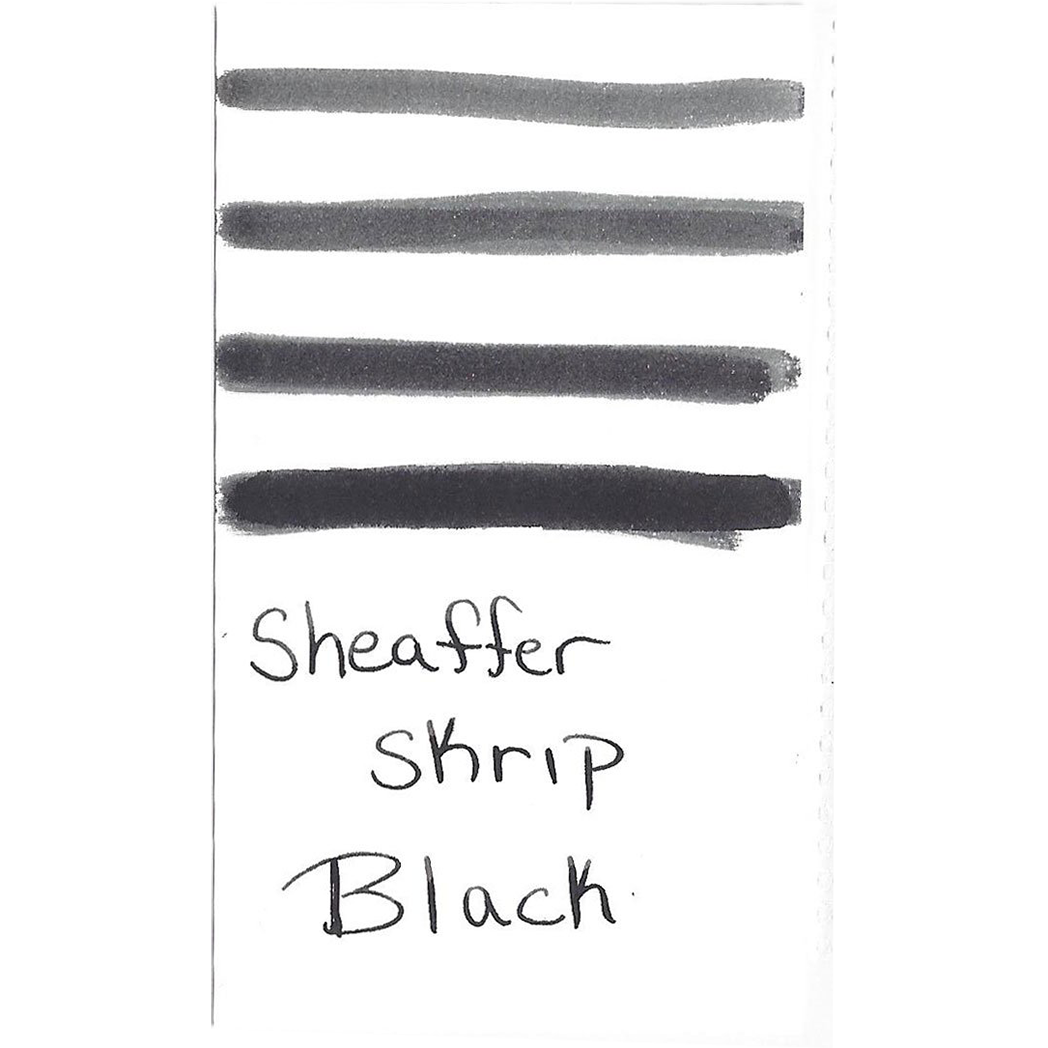 Sheaffer
Skrip
Black